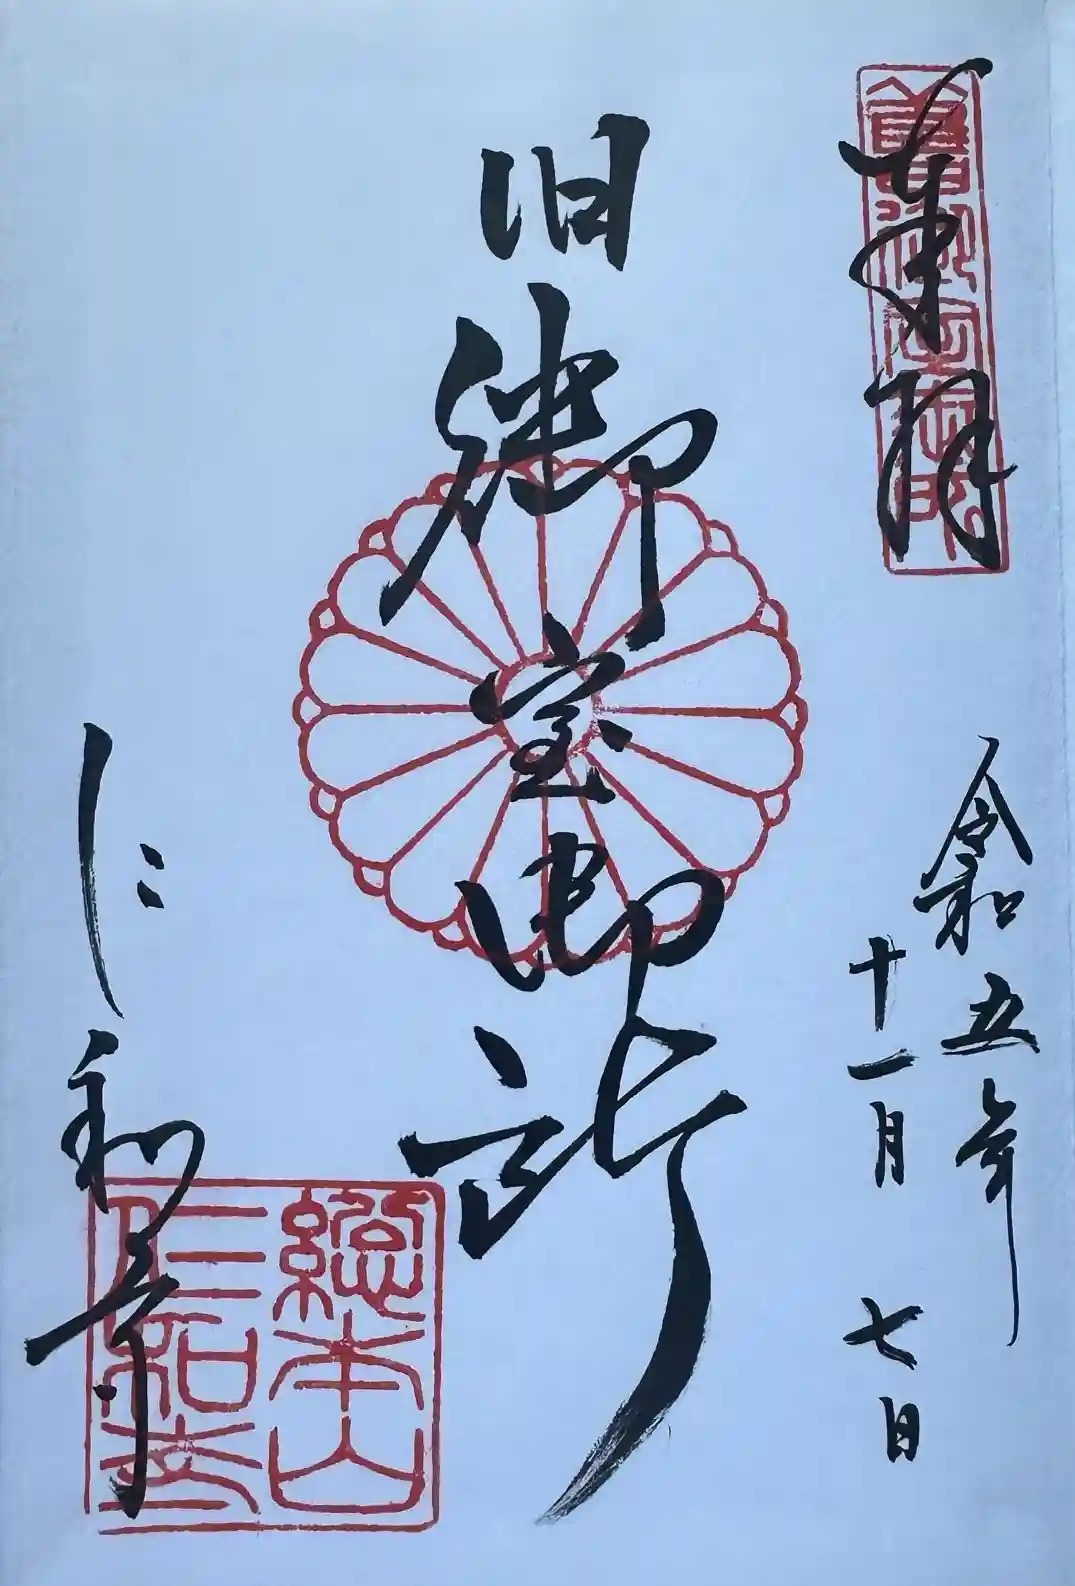 奉拝
令和五年
十一月七日
旧御室御所
仁和寺
總本山
仁和寺